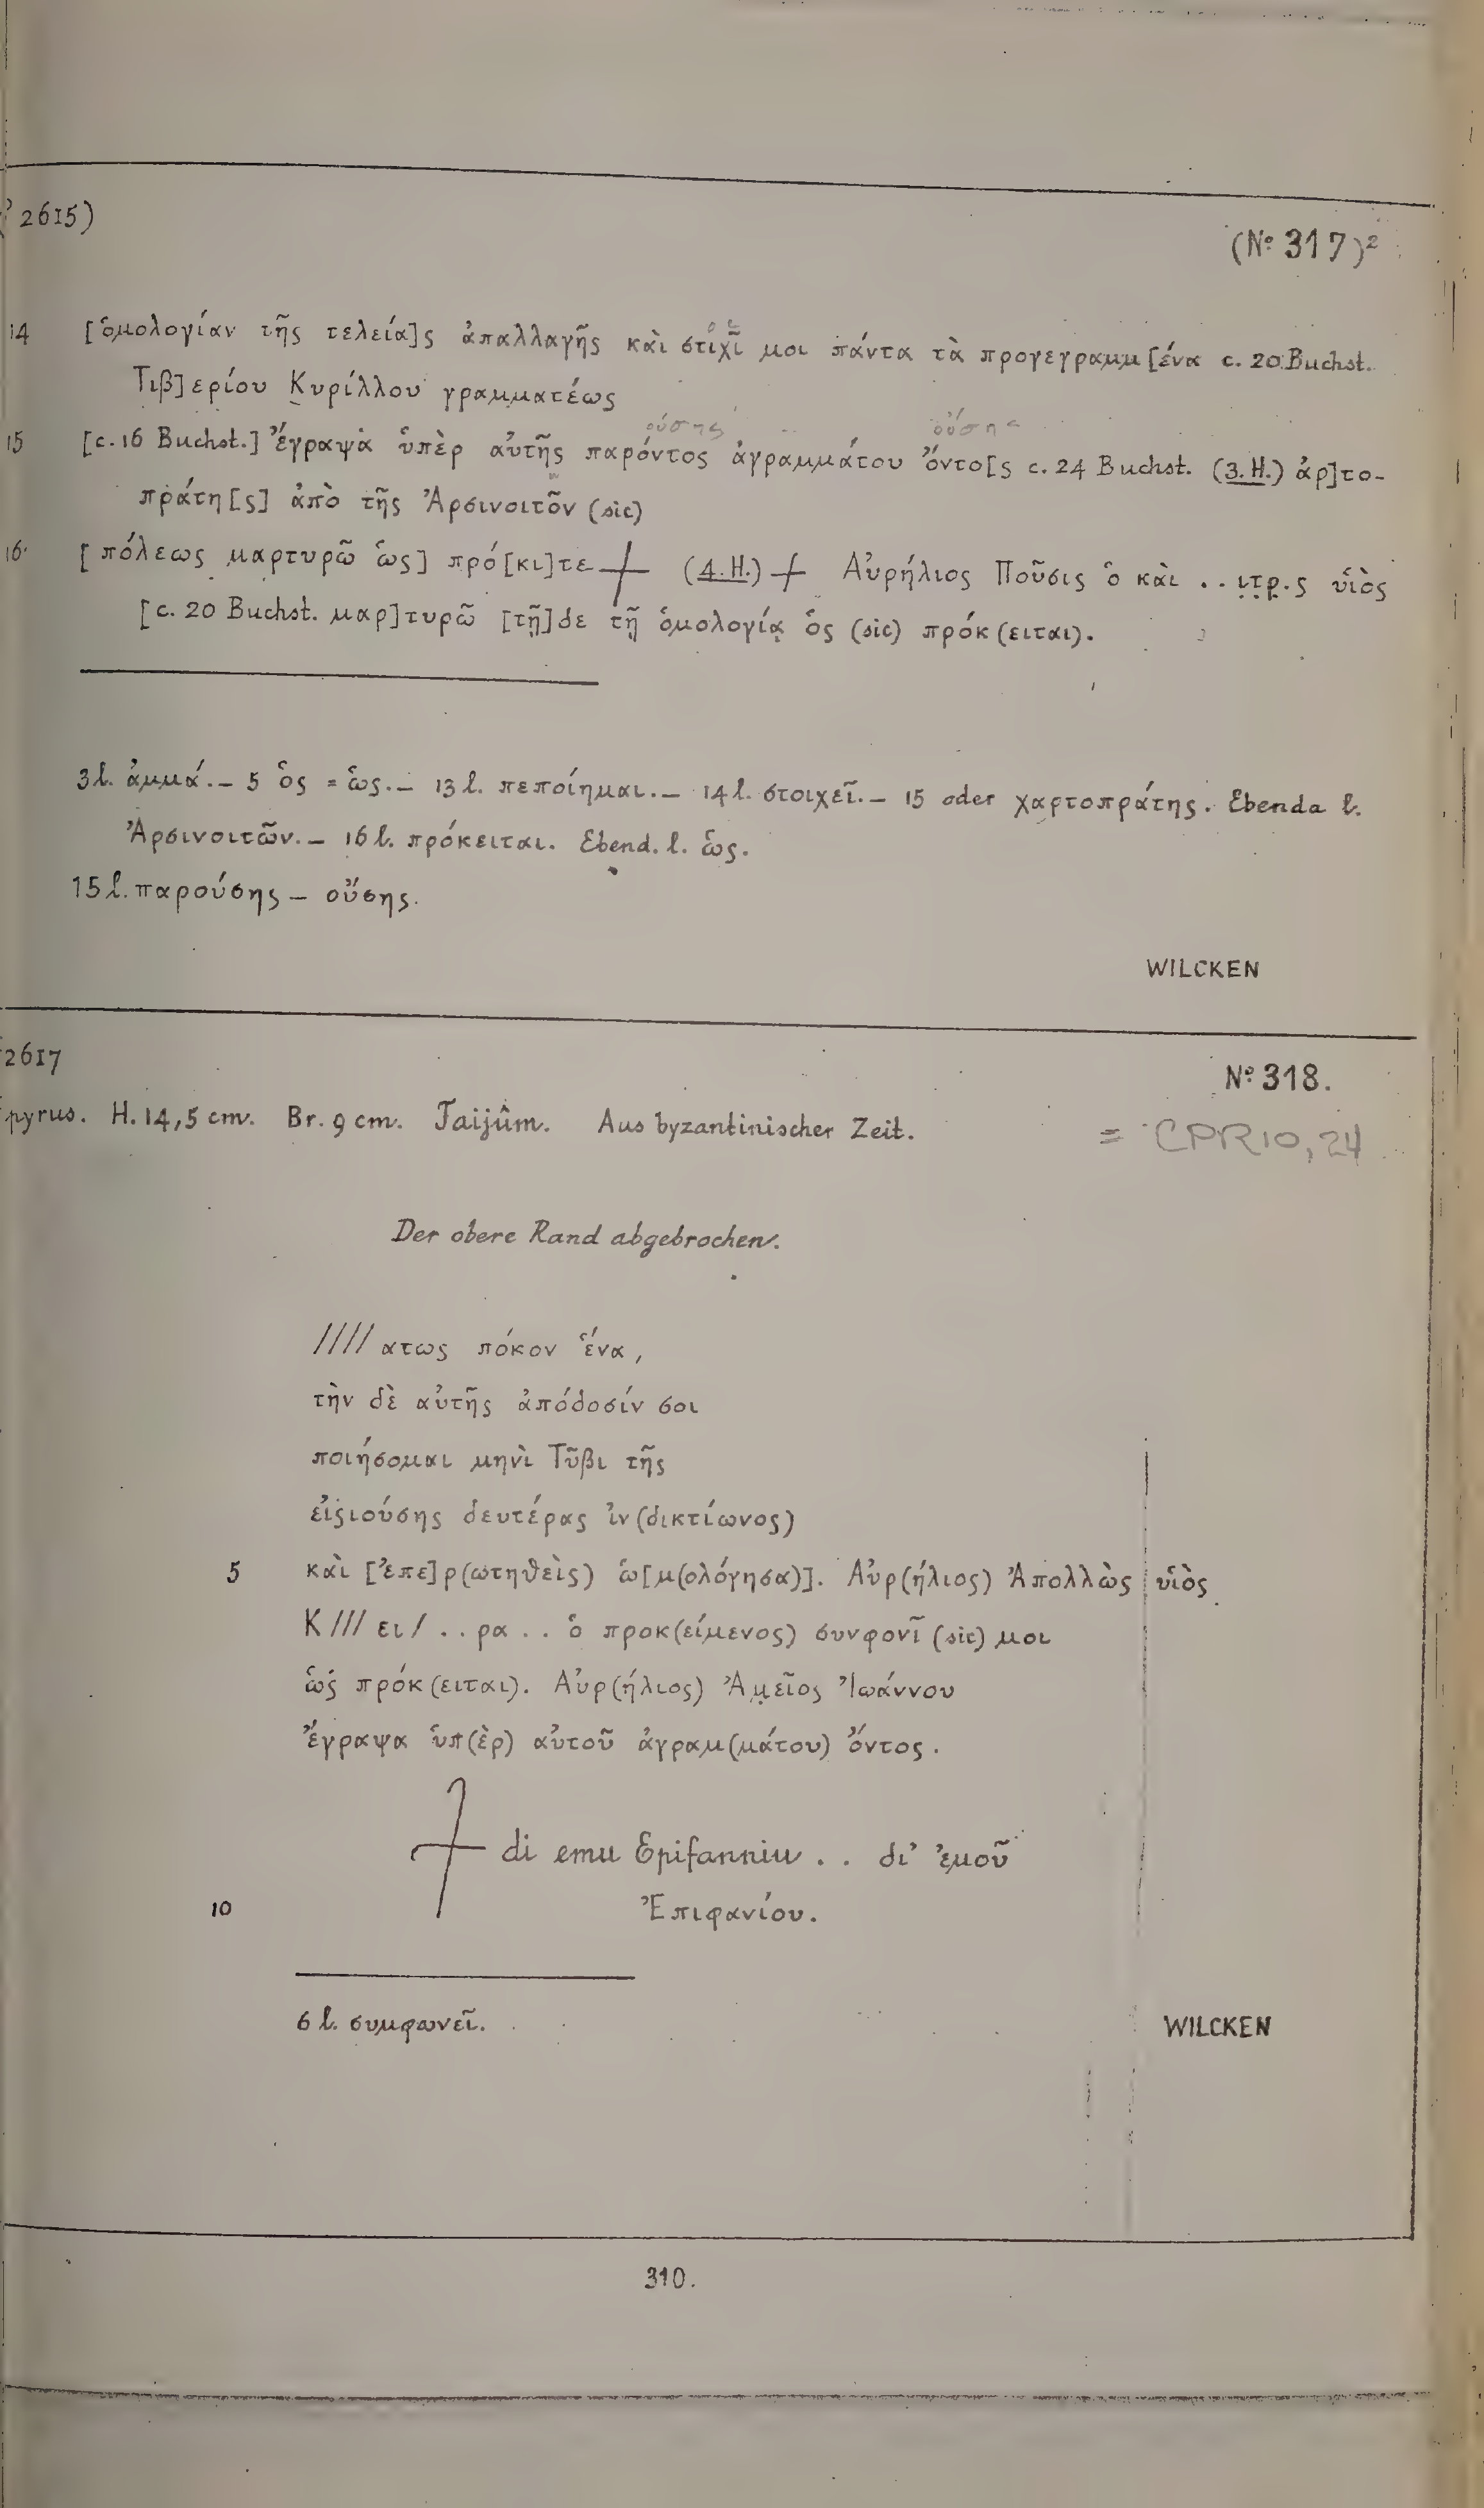 2615)
(Nº 317)²
14 [ὁμολογίαν τῆς τελεία]ς ἀπαλλαγῆς καὶ στιχῖ μοι πάντα τὰ προγεγραμμ[ένα c. 20 Buchst.
Τιβ]ερίου Κυρίλλου γραμματέως
ούσης ούσης
15 [c. 16 Buchst.] ἔγραψα ὑπὲρ αὐτῆς παρόντος ἀγραμμάτου ὄντο[ς c. 24 Buchst. (3. H.) ἀρ]το-
πράτη[ς] ἀπὸ τῆς Ἀρσινοιτο͂ν (sic)
16 [πόλεως μαρτυρῶ ὡς] πρό[κι]τε ┼ (4. H.) ┼ Αὐρήλιος Ποῦσις ὁ καὶ . . ι̣τ̣ρ̣.ς υἱὸς
[c. 20 Buchst. μαρ]τυρῶ [τῇ]δε τῇ ὁμολογίᾳ ὁς (sic) πρόκ(ειται).
3 l. ἀμμά. — 5 ὁς = ὡς. — 13 l. πεποίημαι. — 14 l. στοιχεῖ. — 15 oder χαρτοπράτης. Ebenda l.
Ἀρσινοιτῶν. — 16 l. πρόκειται. Ebend. l. ὡς.
15 l. παρούσης — οὔσης.
WILCKEN
2617
Nº 318.
pyrus. H. 14,5 cm. Br. 9 cm. Faijûm. Aus byzantinischer Zeit.
= CPR 10, 24
Der obere Rand abgebrochen.
//// ατως πόκον ἕνα,
τὴν δὲ αὐτῆς ἀπόδοσίν σοι
ποιήσομαι μηνὶ Τῦβι τῆς
εἰςιούσης δευτέρας ἰν(δικτίωνος)
5 καὶ [ἐπε]ρ(ωτηθεὶς) ὡ[μ(ολόγησα)]. Αὐρ(ήλιος) Ἀπολλὼς υἱὸς
Κ /// ει / . . ρα . . ὁ προκ(είμενος) συνφονῖ (sic) μοι
ὡς πρόκ(ειται). Αὐρ(ήλιος) Ἀμ̣εῖος Ἰωάννου
ἔγραψα ὑπ(ὲρ) αὐτοῦ ἀγραμ(μάτου) ὄντος.
┼ di emu Epifanniu . . δι’ ἐμοῦ
10 Ἐπιφανίου.
6 l. συμφωνεῖ.
WILCKEN
310.